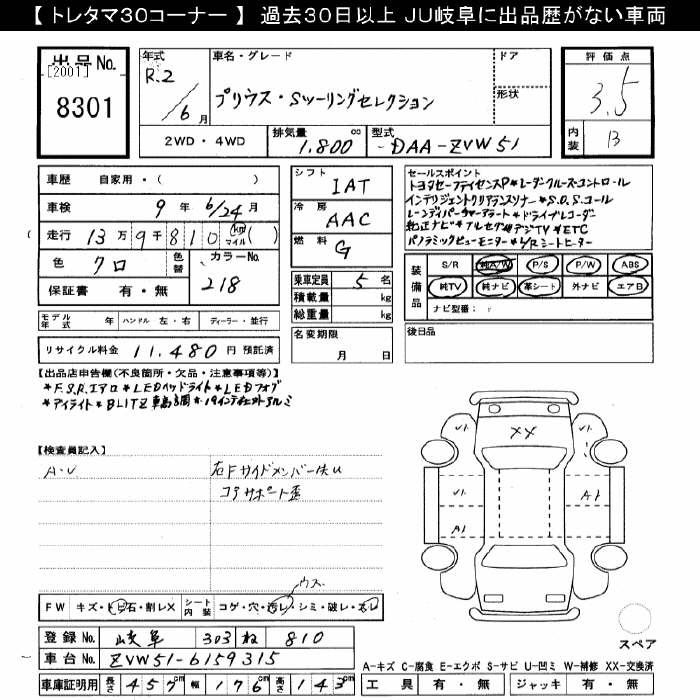 【 トレタマ30コーナー 】 過去30日以上 JU岐阜に出品歴がない車両
出品No.
[2001]
8301
年式
R.2
/6 月
車名・グレード
プリウス・Sツーリングセレクション
ドア
形状
評価点
3.5
内装
B
2WD・4WD
排気量
1,800 cc
型式
DAA-ZVW51
車歴 自家用・( )
車検 9 年 6/24 月
走行 13 万 9 千 810 km マイル ( )
色 クロ
色替
カラーNo. 218
保証書 有・無
シフト IAT
冷房 AAC
燃料 G
乗車定員 5 名
積載量 kg
総重量 kg
セールスポイント
トヨタセーフティセンスP*レーダークルーズコントロール
インテリジェントクリアランスソナー*S.O.Sコール
レーンディパーチャーアラート*ドライブレコーダー
純正ナビ*フルセグ地デジTV*ETC
パノラミックビューモニター*L/Rシートヒーター
装備品
S/R 純A/W P/S P/W ABS
純TV 純ナビ 革シート 外ナビ エアB
ナビ型番:
モデル年式 年 ハンドル 左・右 ディーラー・並行
名変期限
月 日
後日品
リサイクル料金 11,480 円 預託済
【出品店申告欄(不良箇所・欠品・注意事項等)】
*F.S.Rエアロ*LEDヘッドライト*LEDフォグ
*アイライト*BLITZ車高調*19インチ社外アルミ
【検査員記入】
A・U
右Fサイドメンバー状U
コアサポート歪
XX
A1
A1
ウス
FW キズ・トビ石・割レX
シート内装 コゲ・穴・汚レ・シミ・破レ・スレ
登録No. 岐阜 303 ね 810
車台No. ZVW51-6159315
車庫証明用 長さ 457 cm 幅 176 cm 高さ 143 cm
スペア
A-キズ C-腐食 E-エクボ S-サビ U-凹ミ W-補修 XX-交換済
工具 有・無 ジャッキ 有・無